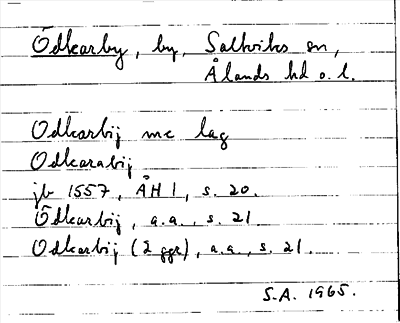 Ödkarby, by, Saltviks sn,
Ålands hd o. l.
Ödkarbij mc lag
Odkarabij
jb 1557, ÅH 1, s. 20.
Ödkarbij, a.a., s. 21
Odkarbij (2 ggr), a.a., s. 21.
S.A. 1965.